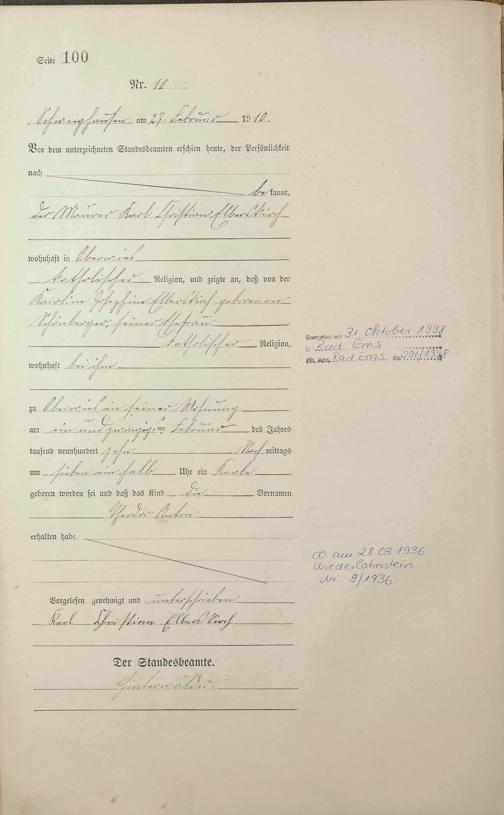 Seite 100
Nr. 10
Schweighausen am 27. Februar 1910.
Vor dem unterzeichneten Standesbeamten erschien heute, der Persönlichkeit
nach
bekannt,
der Maurer Karl Christian Elbert
wohnhaft in Oberwies
katholischer Religion, und zeigte an, daß von der
Karoline Josephine geborenen
Schönberger, seiner Ehefrau
katholischer Religion,
wohnhaft bei ihm
zu Oberwies in seiner Wohnung
am ein und zwanzigsten Februar des Jahres
tausend neunhundert zehn Nachmittags
um sieben ein halb Uhr ein Knabe
geboren worden sei und daß das Kind die Vornamen
Theodor Anton
erhalten habe.
Vorgelesen genehmigt und unterschrieben
Karl Christian
Der Standesbeamte.
Gestorben am 31. Oktober 1998
in Bad Ems
StA Bad Ems Nr.
∞ am 28 03 1936
Niederlahnstein
Nr. 9/1936